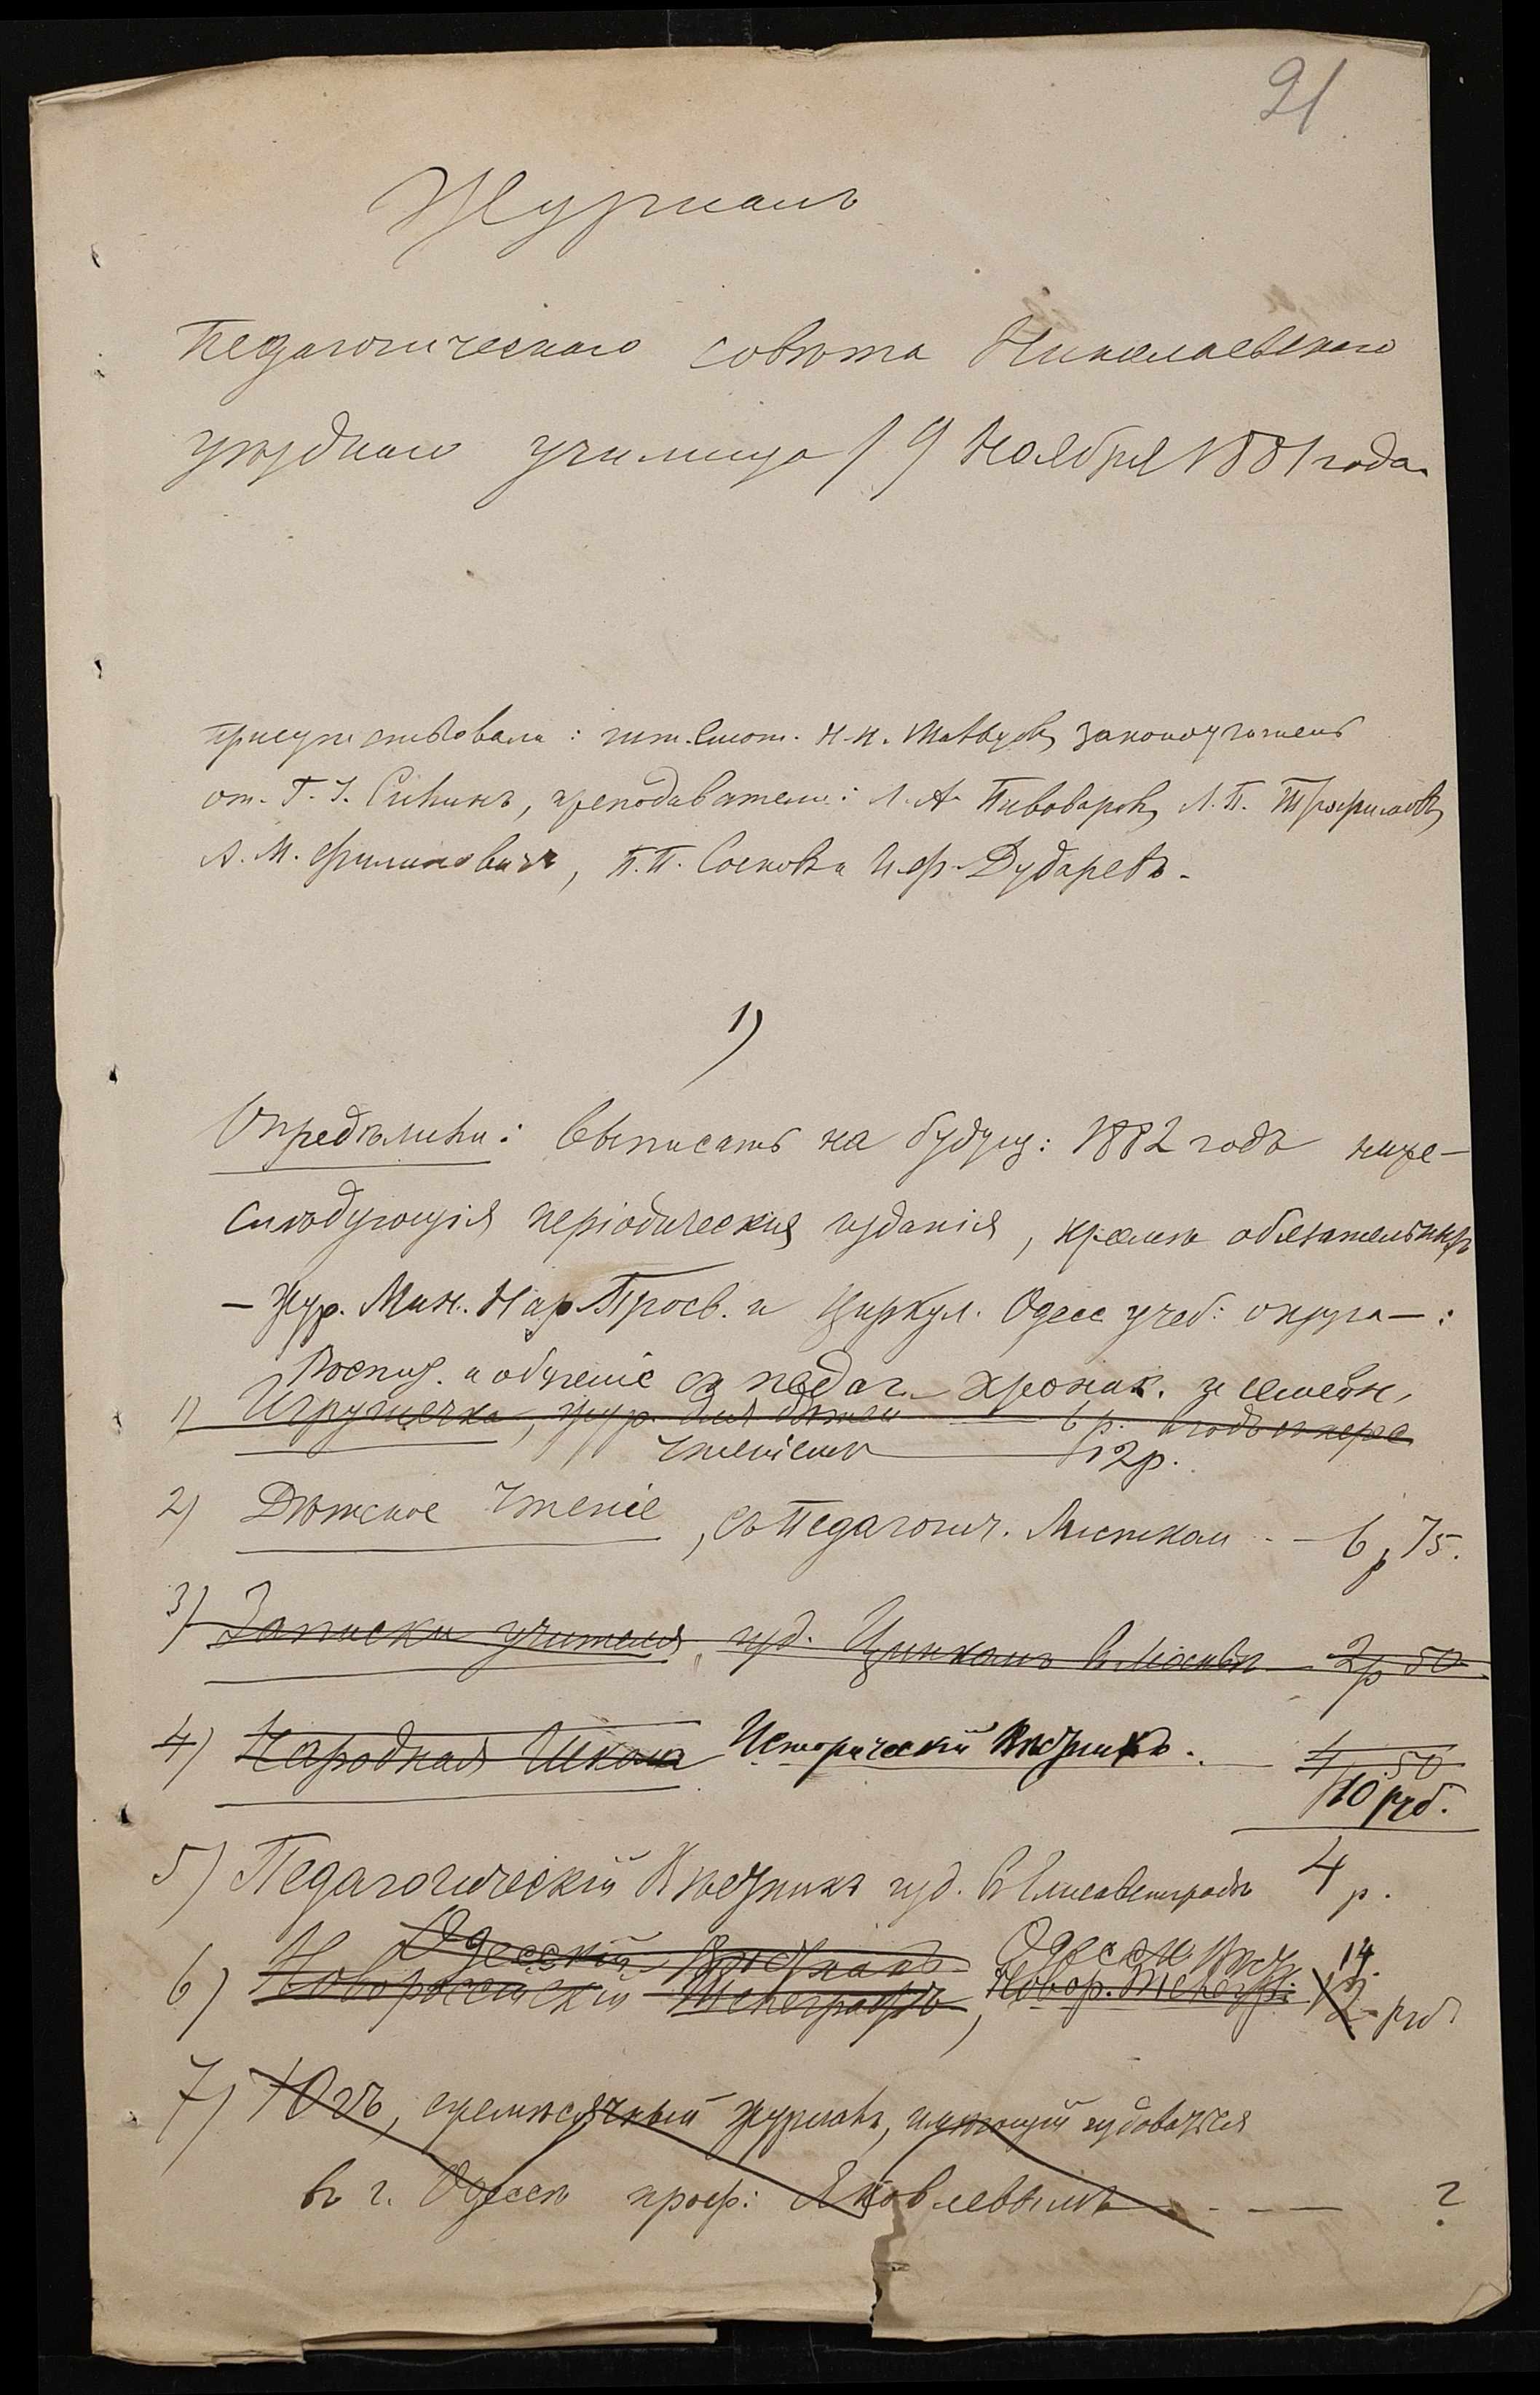 91
Журналъ
Педагогическаго совѣта Николаевскаго
уѣзднаго училища 19 Ноября 1881 года.
присутствовали: шт. смот. Н. Н. законоучитель
от. Г. І. преподаватели: Л. А. Пивоваровъ, Л. П. Трофимовъ,
А. М. Филиповичъ, П. П. и Дударевъ.
1)
Опредѣлили: Выписать на будущ: 1882 годъ ниже-
слѣдующія періодическія изданія, кромѣ обязательныхъ
– Жур. Мин. Нар. Просв. и Циркул. Одесс. учеб: округа –:
Воспит. и обученіе съ педаг. хроник. и семейн.
1) Игрушечка, жур. для дѣтей 6 р. въ годъ съ пере
чтеніемъ 12 р.
2) Дѣтское Чтеніе, съ Педагогич. Листкомъ - – 6 р 75.
3) Записки учителя, изд. въ Москвѣ – 2 р 50
4) Народная Школа Историческій Вѣстникъ. 4 50
10 руб.
5) Педагогическій Вѣстникъ изд. въ Елисаветградѣ 4 р.
Одесскій Вѣстникъ Одесск Вѣст. 14
6) Новороссійскій Телеграфъ, Новор. Телегр: 12 – руб
7) Югъ, ежемѣсячный журналъ, имѣющій издоваться
въ г. Одессѣ проф: Яковлевымъ - - – — ?